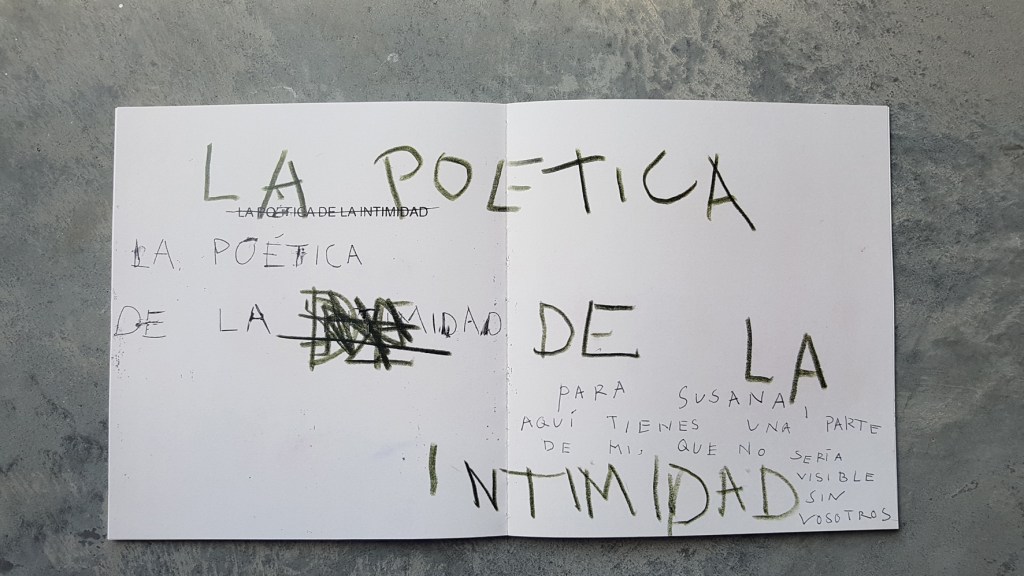 LA POETICA
LA POÉTICA DE LA INTIMIDAD
LA POÉTICA
DE LA MIDAD
DE LA
PARA SUSANA,
AQUÍ TIENES UNA PARTE
DE MI, QUE NO SERÍA
VISIBLE
SIN
VOSOTROS
INTIMIDAD